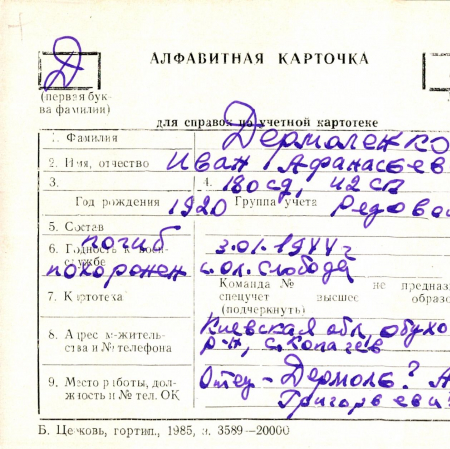 Д
АЛФАВИТНАЯ КАРТОЧКА
(первая бук-
ва фамилии)
для справок по учетной картотеке
1. Фамилия Дермоленко
2. Имя, отчество Иван Афанасьев
3. 4. 180 сд, 42 сп
Год рождения 1920 Группа учета Рядово
5. Состав
погиб 3.01.1944 г
6. Годность к воен-
службе
похоронен с. Ол. Слобода
7. Картотека Команда № не предназ
спецучет высшее образо
(подчеркнуть)
8. Адрес жительства и № телефона Киевская обл, обухо
р-н, с. Копачев
9. Место работы, дол-
жность и № тел. ОК
Отец – Дермоль? А
Григорьеви
Б. Церковь, гортип., 1985, з. 3589—20000